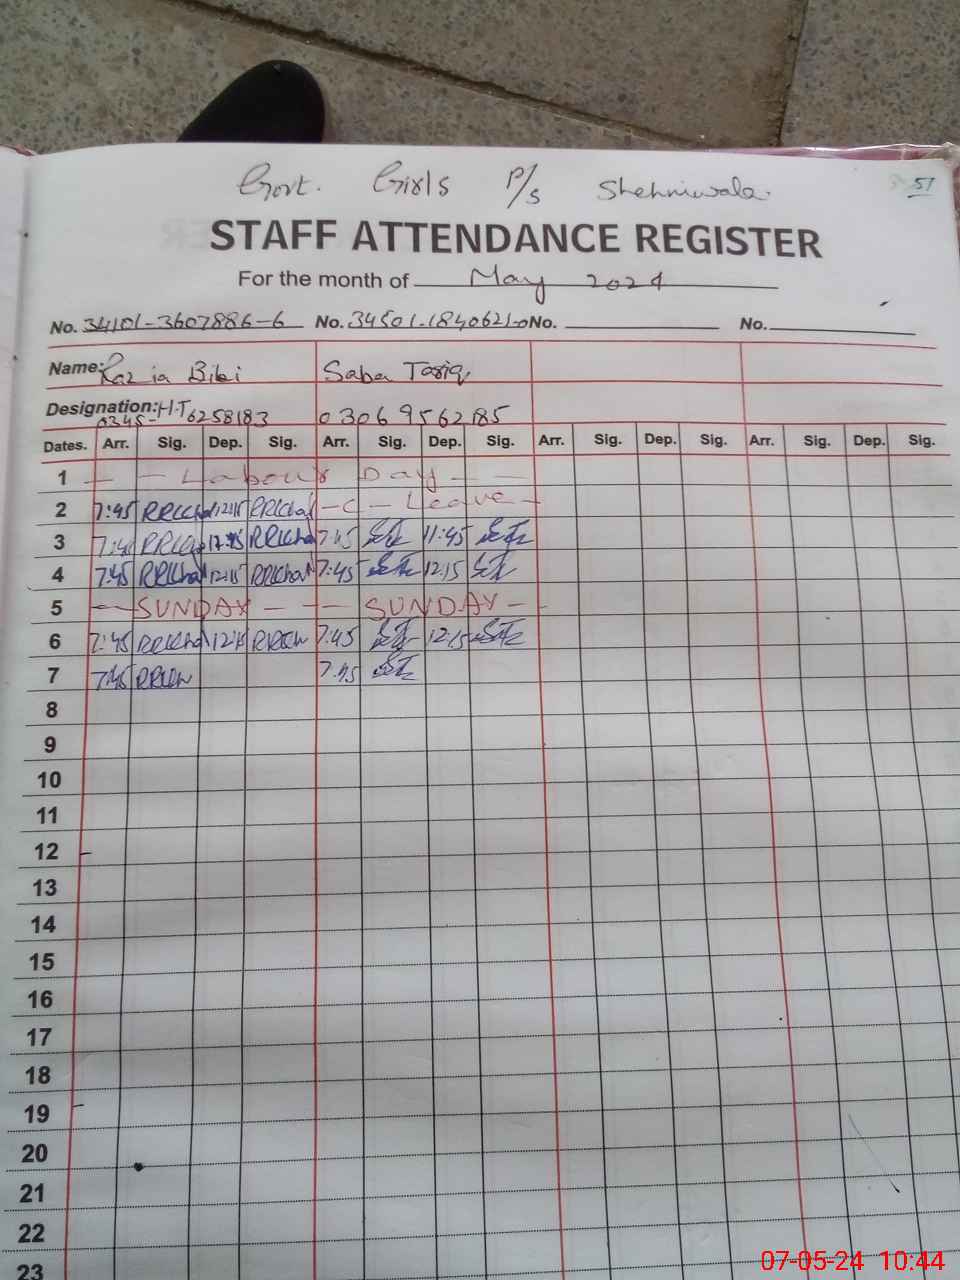 Govt. Girls P/S Shehniwala.
51
STAFF ATTENDANCE REGISTER
For the month of May 2024
No. 34101-3607886-6 No. 34501-1840621-0 No. No.
Name: Razia Bibi Saba Tariq
Designation: H.T 0306 9562185
0345-6258183
Dates. Arr. Sig. Dep. Sig. Arr. Sig. Dep. Sig. Arr. Sig. Dep. Sig. Arr. Sig. Dep. Sig.
1 - - Labour Day - -
2 7:45 12:15 - C - Leave -
3 7:45 7:45 11:45
4 7:45 12:15 7:45 12:15
5 - - SUNDAY - - - SUNDAY -
6 7:45 12:15 7:45 12:15
7 7:45 7:45
8
9
10
11
12
13
14
15
16
17
18
19
20
21
22
23
07-05-24 10:44